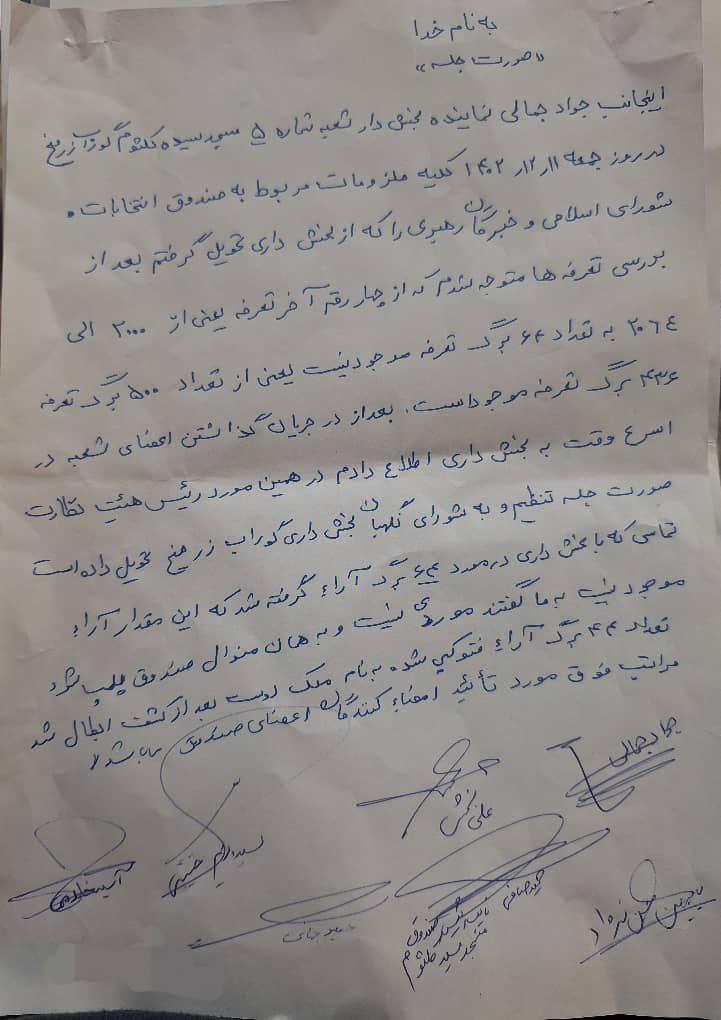 به نام خدا
«صورت جلسه»
اینجانب جواد جمالی نماینده بخش دار شعبه شماره ۵ مسجد سیده کلثوم گوراب زرمخ
در روز جمعه ۱۱ر۱۲ر۱۴۰۲ کلیه ملزومات مربوط به صندوق انتخابات
شورای اسلامی و خبرگان رهبری را که از بخش داری تحویل گرفتم بعد از
بررسی تعرفه ها متوجه شدم که از چهار رقم آخر تعرفه یعنی از ۲۰۰۰ الی
۲۰۶۴ به تعداد ۶۴ برگ تعرفه موجود نیست یعنی از تعداد ۵۰۰ برگ تعرفه
۴۳۶ برگ تعرفه موجود است. بعد از در جریان گذاشتن اعضای شعبه در
اسرع وقت به بخش داری اطلاع دادم در همین مورد رئیس هیئت نظارت
صورت جلسه تنظیم و به شورای نگهبان بخش داری گوراب زرمخ تحویل داده است
تماسی که با بخش داری در مورد ۶۴ برگ آراء گرفته شد که این مقدار آراء
موجود نیست به ما گفتند موردی نیست و به همان منوال صندوق پلمپ شود
تعداد ۴۴ برگ آراء فتوکپی شده به نام ملک دوست بعد از کشف ابطال شد
مراتب فوق مورد تأئید امضاء کنندگان اعضای صندوق می باشد
جواد جمالی
علی بخش
سید
آسیه
مسجد سیده کلثوم